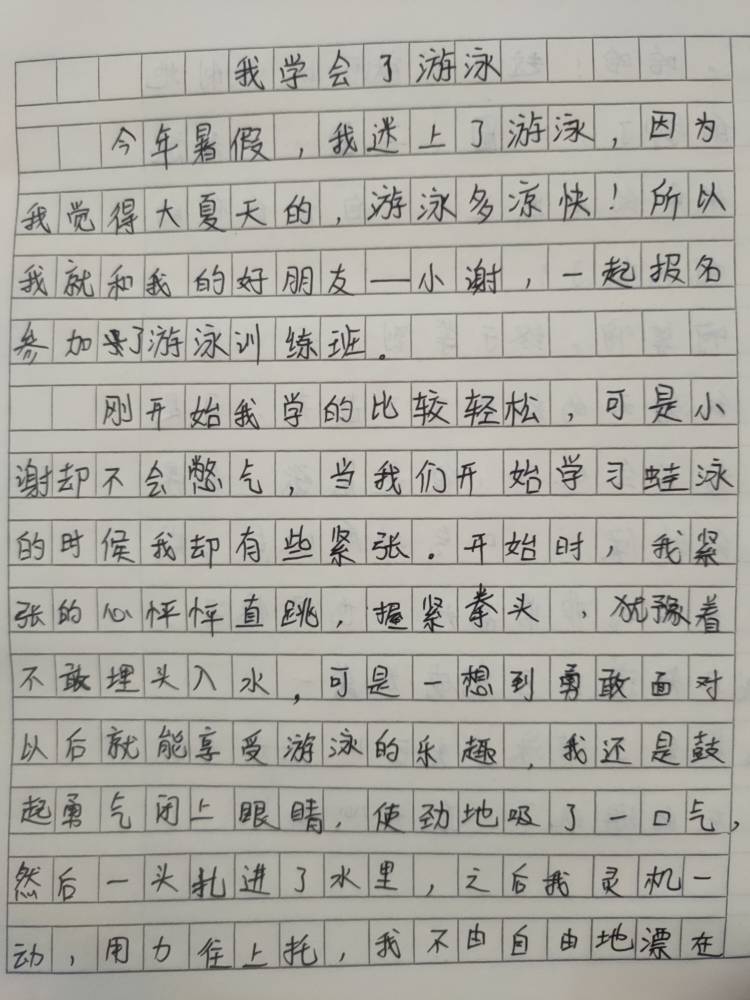 我学会了游泳
今年暑假，我迷上了游泳，因为
我觉得大夏天的，游泳多凉快！所以
我就和我的好朋友——小谢，一起报名
参加了游泳训练班。
刚开始我学的比较轻松，可是小
谢却不会憋气，当我们开始学习蛙泳
的时候我却有些紧张。开始时，我紧
张的心怦怦直跳，握紧拳头，犹豫着
不敢埋头入水，可是一想到勇敢面对
以后就能享受游泳的乐趣，我还是鼓
起勇气闭上眼睛，使劲地吸了一口气，
然后一头扎进了水里，之后我灵机一
动，用力往上托，我不由自由地漂在